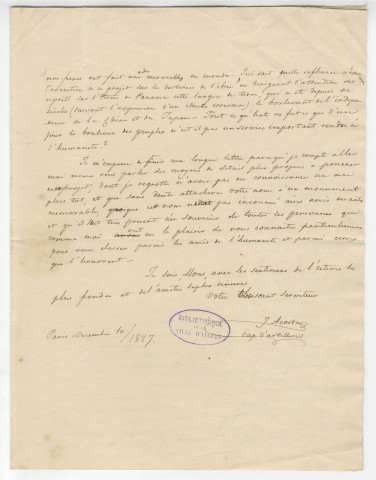 nos pères ont fait une des merveilles du monde. Qui sait quelle influence n'aura
l'exécution de ce projet sur les destinées de l'Asie! en dirigeant l'attention des
esprits sur l'Isthme de Panama cette langue de terre, qui a été depuis des
siècles (suivant l'expression d'un illustre écrivain) le boulevard de l'indépen
dance de la Chine et du Japon. Tout ce qu'on fait en ce but que d'un
jour le bonheur des peuples n'est-il pas un service important rendu à
l'humanité?
Je m'empresse de finir ma longue lettre parceque je compte aller
moi même vous parler des moyens de détail plus propres à pousser
ce projet, dont je regrette n'avoir pas eu connaissance un an
plus tot, et que sans doute attachera votre nom à un monument
memorable, quoique cet nom n'était pas inconnu aux amis
et qu'il soit très présent au souvenir de toutes les personnes qui
comme moi ont eu le plaisir de vous connaitre particulièrement
pour vous classer parmi les amis de l'humanité et parmi ceux
que l'honorent.
Je suis Mons. avec les sentimens de l'estime la
plus profonde et de l'amitié la plus sincere
votre obéissant serviteur
J. Acosta
cap. d'artillerie
Paris Decembre 10/1827
BIBLIOTHÈQUE
DE LA
VILLE D'